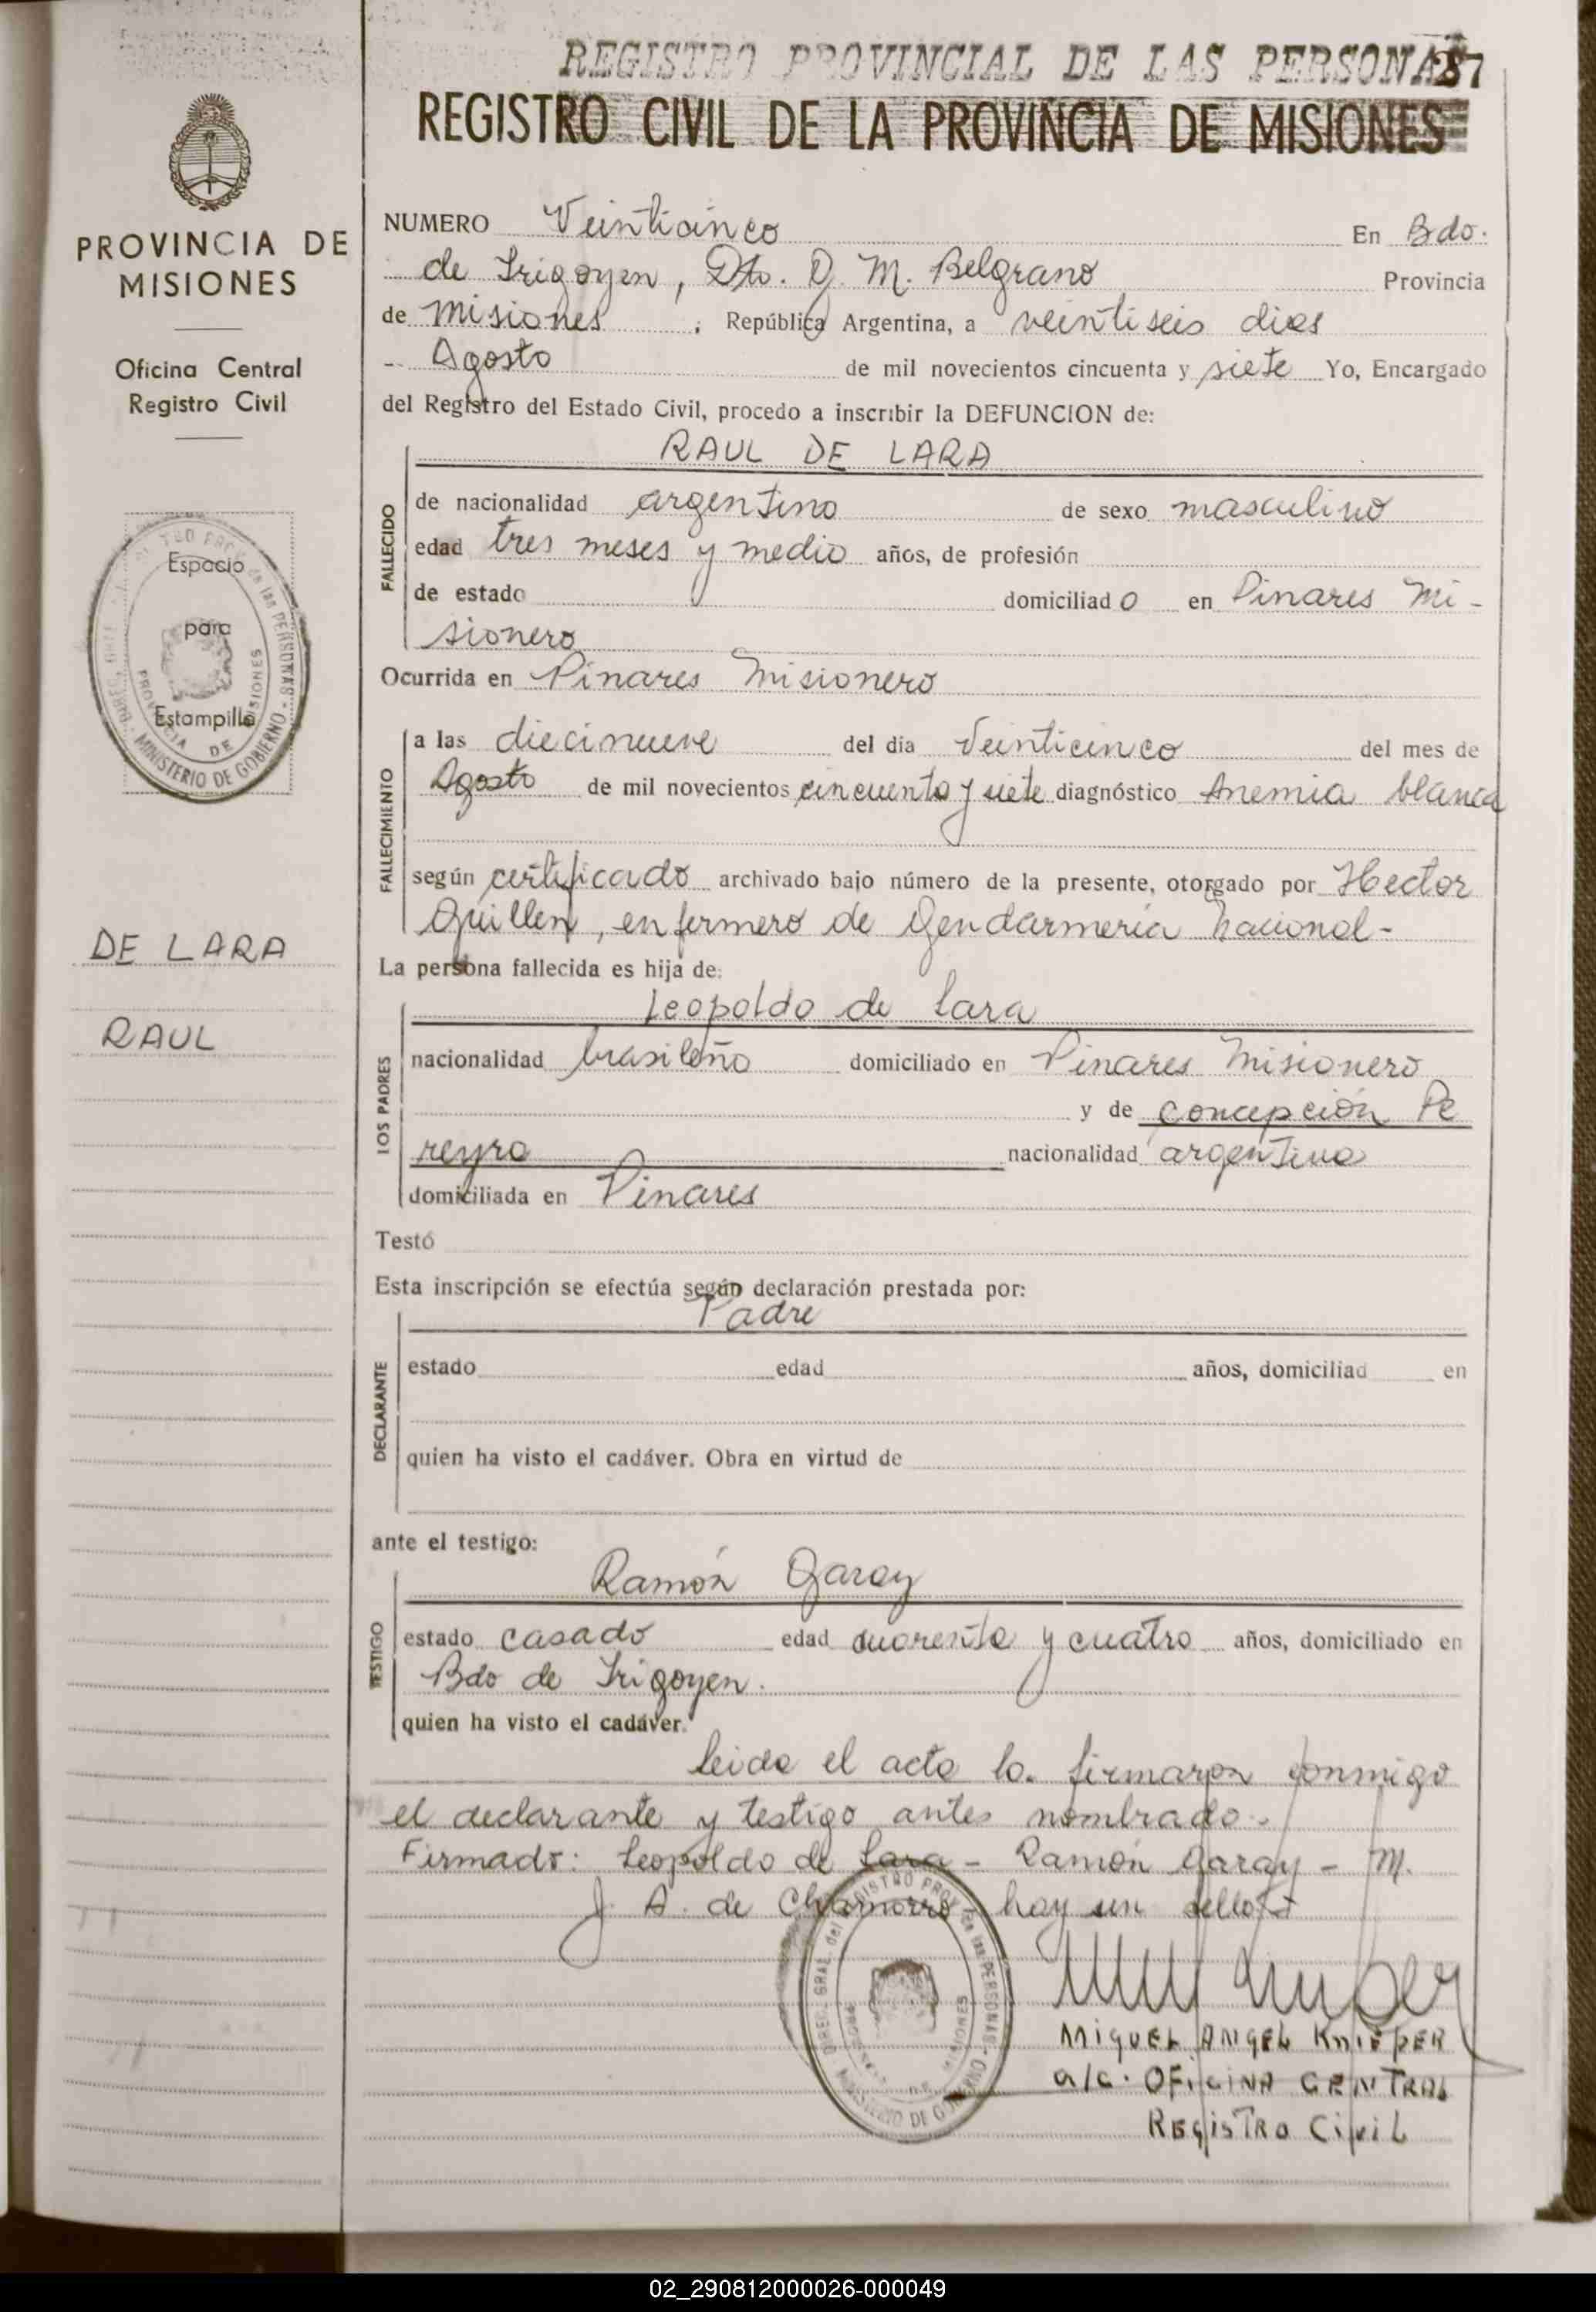 REGISTRO PROVINCIAL DE LAS PERSONAS
REGISTRO CIVIL DE LA PROVINCIA DE MISIONES
PROVINCIA DE
MISIONES
Oficina Central
Registro Civil
Espacio
para
Estampilla
DE LARA
RAUL
NUMERO Veinticinco En Bdo.
de Irigoyen, Dto. G. M. Belgrano Provincia
de Misiones ; República Argentina, a veintiseis dias
Agosto de mil novecientos cincuenta y siete Yo, Encargado
del Registro del Estado Civil, procedo a inscribir la DEFUNCION de:
FALLECIDO
RAUL DE LARA
de nacionalidad argentino de sexo masculino
edad tres meses y medio años, de profesión
de estado domiciliado en Pinares Mi-
sionero
Ocurrida en Pinares Misionero
FALLECIMIENTO
a las diecinueve del dia Veinticinco del mes de
Agosto de mil novecientos cincuenta y siete diagnóstico Anemia blanca
según certificado archivado bajo número de la presente, otorgado por Hector
Guillen, enfermero de Gendarmeria Nacional-
La persona fallecida es hija de:
LOS PADRES
Leopoldo de Lara
nacionalidad brasileño domiciliado en Pinares Misionero
y de Concepción Pe
reyra nacionalidad argentina
domiciliada en Pinares
Testó
Esta inscripción se efectúa según declaración prestada por:
DECLARANTE
Padre
estado edad años, domiciliad en
quien ha visto el cadáver. Obra en virtud de
ante el testigo:
TESTIGO
Ramón Garay
estado casado edad cuarenta y cuatro años, domiciliado en
Bdo de Irigoyen.
quien ha visto el cadáver.
Leida el acta la firmaron conmigo
el declarante y testigo antes nombrado.
Firmado: Leopoldo de Lara - Ramón Garay - M.
J. A. de Chamorro hay un sello
MIGUEL ANGEL KNIEPER
a/c. OFICINA CENTRAL
REGISTRO CIVIL
02_290812000026-000049